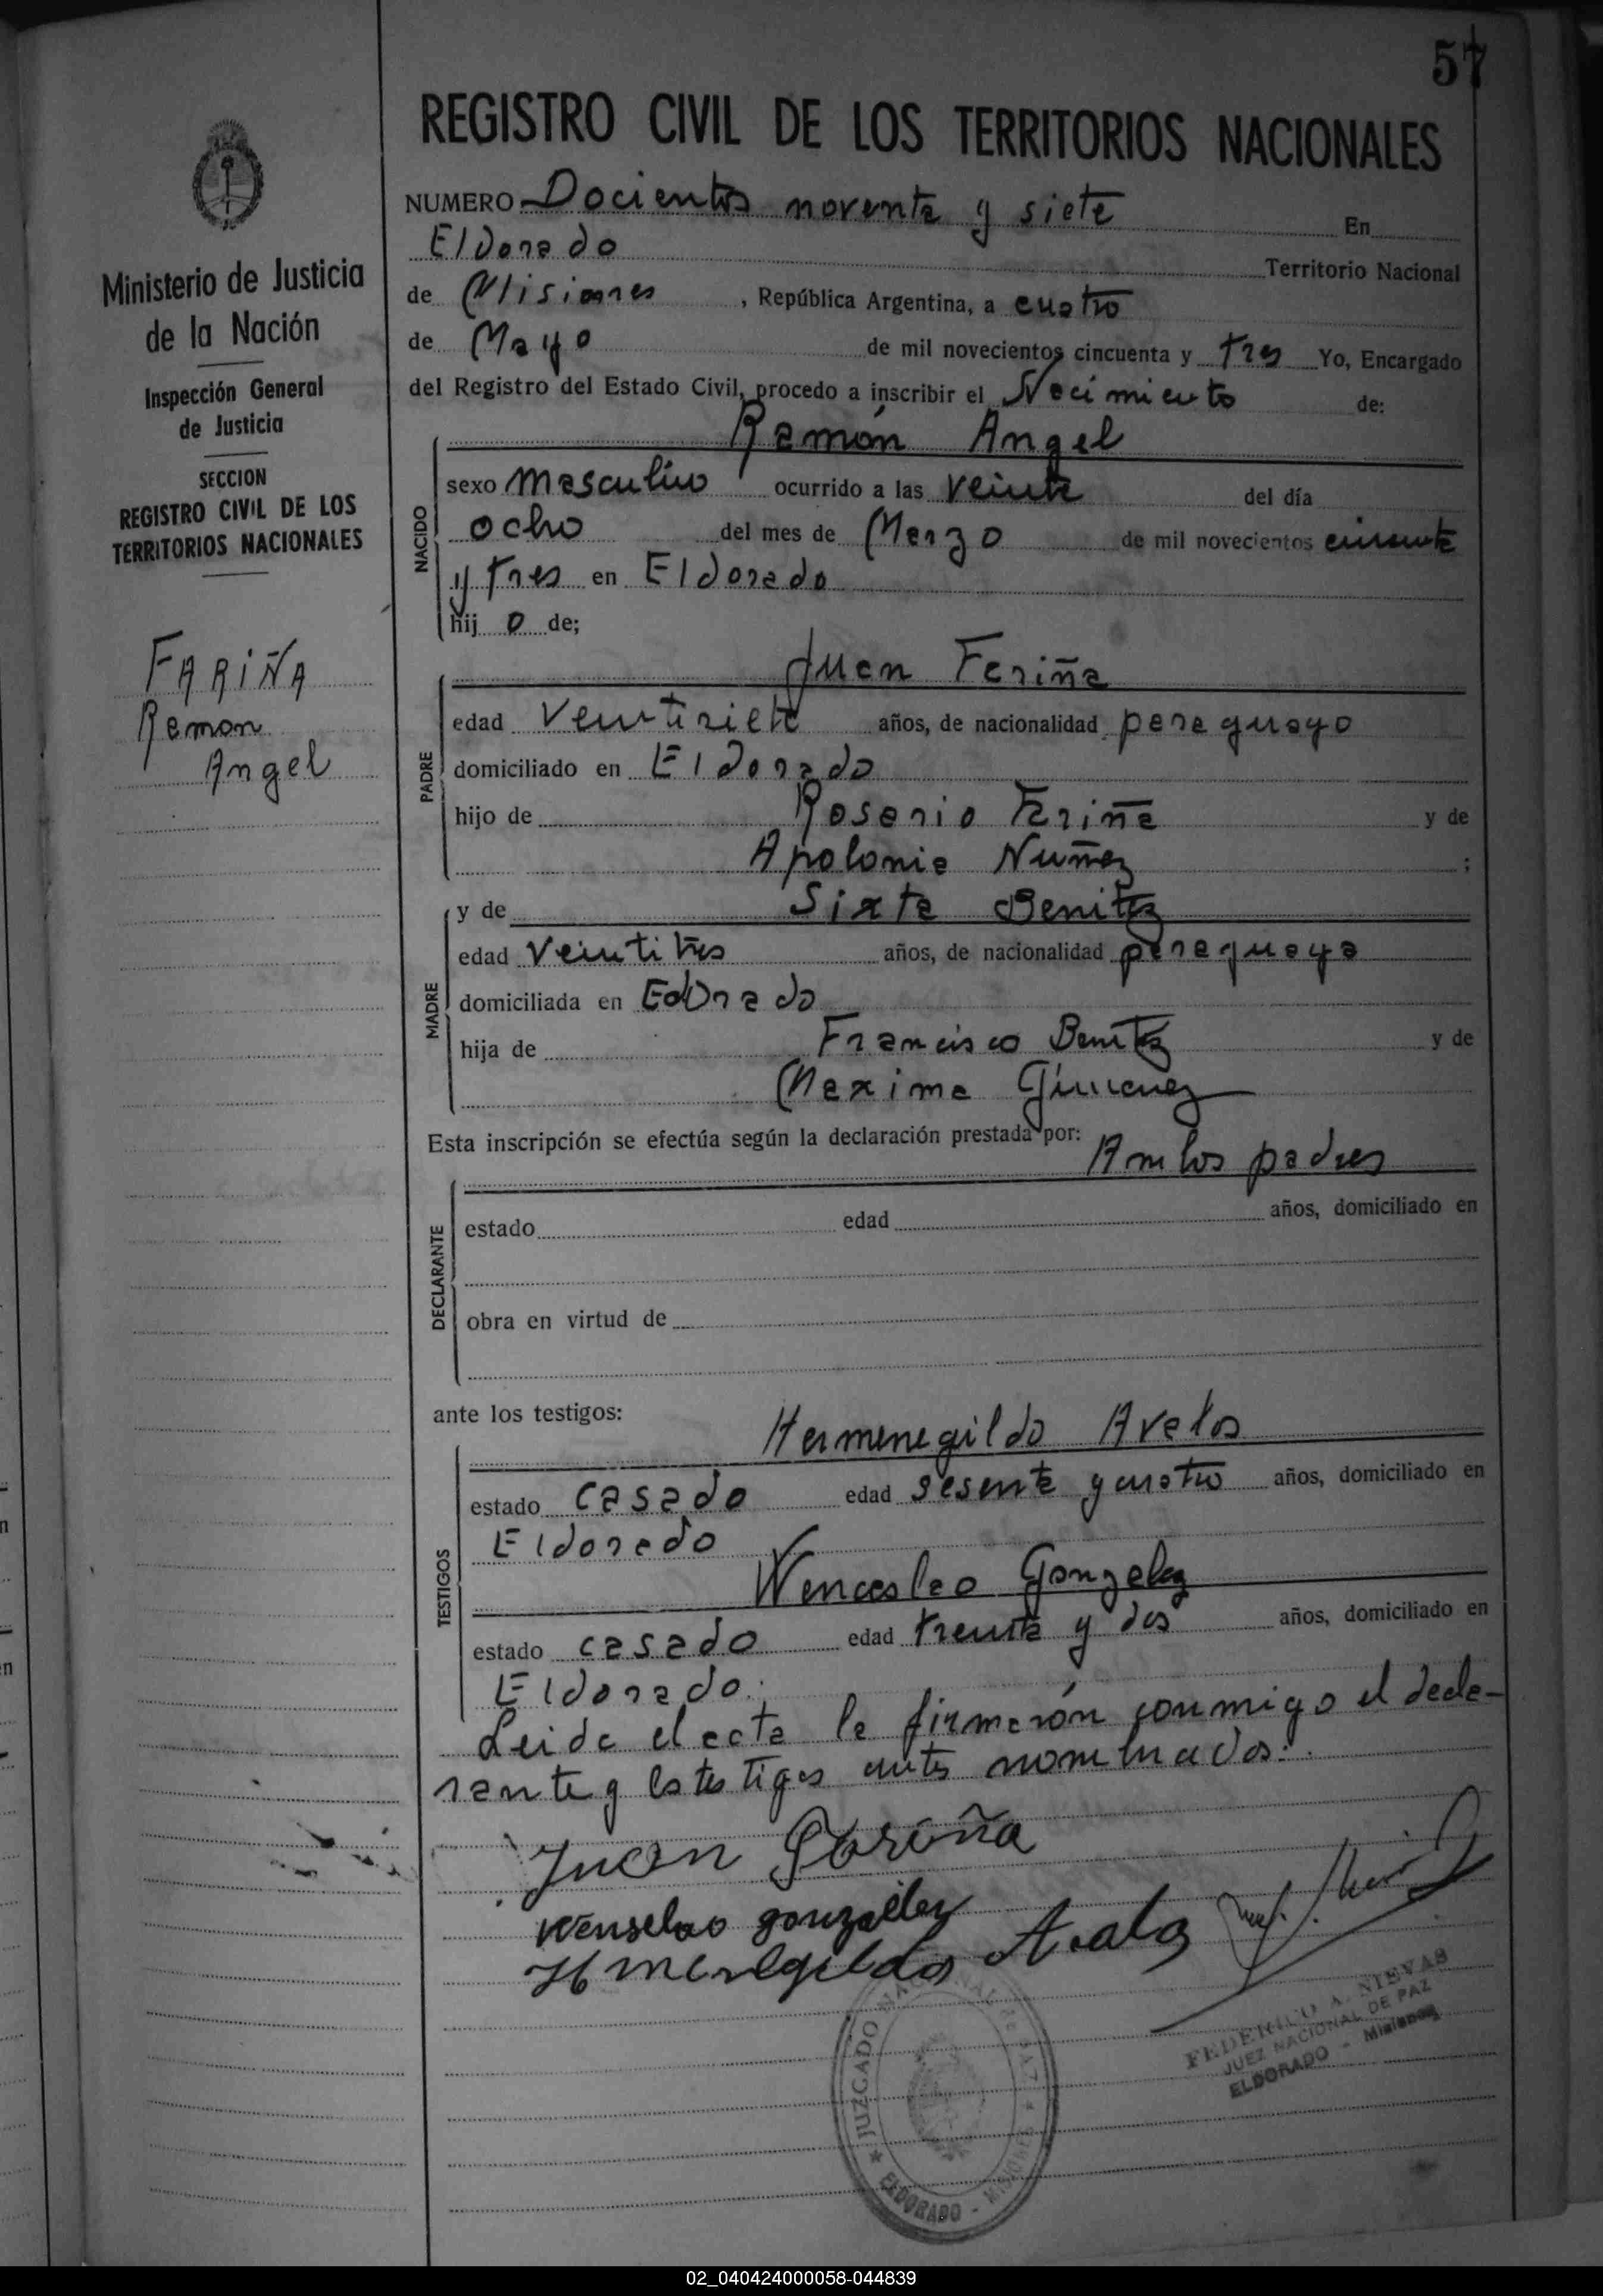 57
REGISTRO CIVIL DE LOS TERRITORIOS NACIONALES
Ministerio de Justicia
de la Nación
Inspección General
de Justicia
SECCION
REGISTRO CIVIL DE LOS
TERRITORIOS NACIONALES
FARIÑA
Ramon
Angel
NUMERO Docientos noventa y siete En
Eldorado Territorio Nacional
de Misiones, República Argentina, a cuatro
de Mayo de mil novecientos cincuenta y tres Yo, Encargado
del Registro del Estado Civil, procedo a inscribir el Nacimiento de:
Ramón Angel
NACIDO
sexo masculino ocurrido a las veinte del día
ocho del mes de Marzo de mil novecientos cincuenta
y tres en Eldorado
hijo de;
Juan Fariña
PADRE
edad veintisiete años, de nacionalidad paraguayo
domiciliado en Eldorado
hijo de Rosario Fariña y de
Apolonia Nuñez ;
MADRE
y de Sixta Benitez
edad veintitres años, de nacionalidad paraguaya
domiciliada en Edorado
hija de Francisco Benitez y de
Maxima Gimenez
Esta inscripción se efectúa según la declaración prestada por:
Ambos padres
DECLARANTE
estado edad años, domiciliado en
obra en virtud de
ante los testigos:
Hermenegildo Avalos
TESTIGOS
estado casado edad sesenta y cuatro años, domiciliado en
Eldorado
Wenceslao Gonzalez
estado casado edad treinta y dos años, domiciliado en
Eldorado.
Leida el acta la firmarón conmigo el decla-
rante y los testigos antes nombrados.
Juan Fariña
Wenselao gonzalez
FEDERICO A. NIEVAS
JUEZ NACIONAL DE PAZ
ELDORADO - Misiones
JUZGADO NACIONAL DE PAZ
ELDORADO - MISIONES
02_040424000058-044839